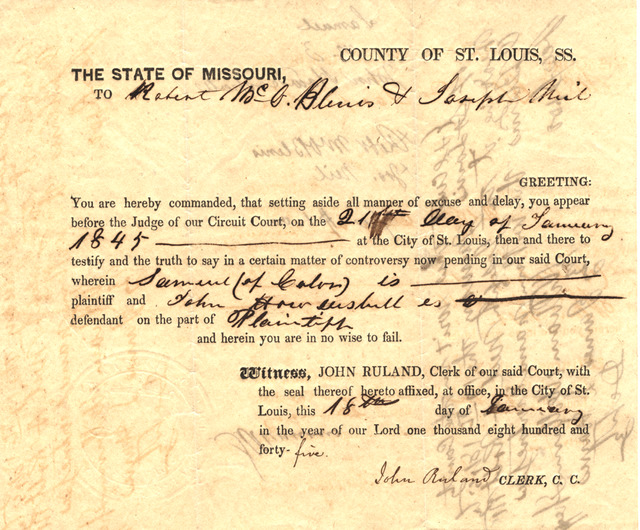 COUNTY OF ST. LOUIS, SS.
THE STATE OF MISSOURI,
TO Robert McO Blenis & Joseph Neil
GREETING:
You are hereby commanded, that setting aside all manner of excuse and delay, you appear
before the Judge of our Circuit Court, on the day of January
1845 at the City of St. Louis, then and there to
testify and the truth to say in a certain matter of controversy now pending in our said Court,
wherein Samuel (of Color) is
plaintiff and John Howdeshell is
defendant on the part of Plaintiff
and herein you are in no wise to fail.
Witness, JOHN RULAND, Clerk of our said Court, with
the seal thereof hereto affixed, at office, in the City of St.
Louis, this 18th day of January
in the year of our Lord one thousand eight hundred and
forty-five.
John Ruland CLERK, C. C.